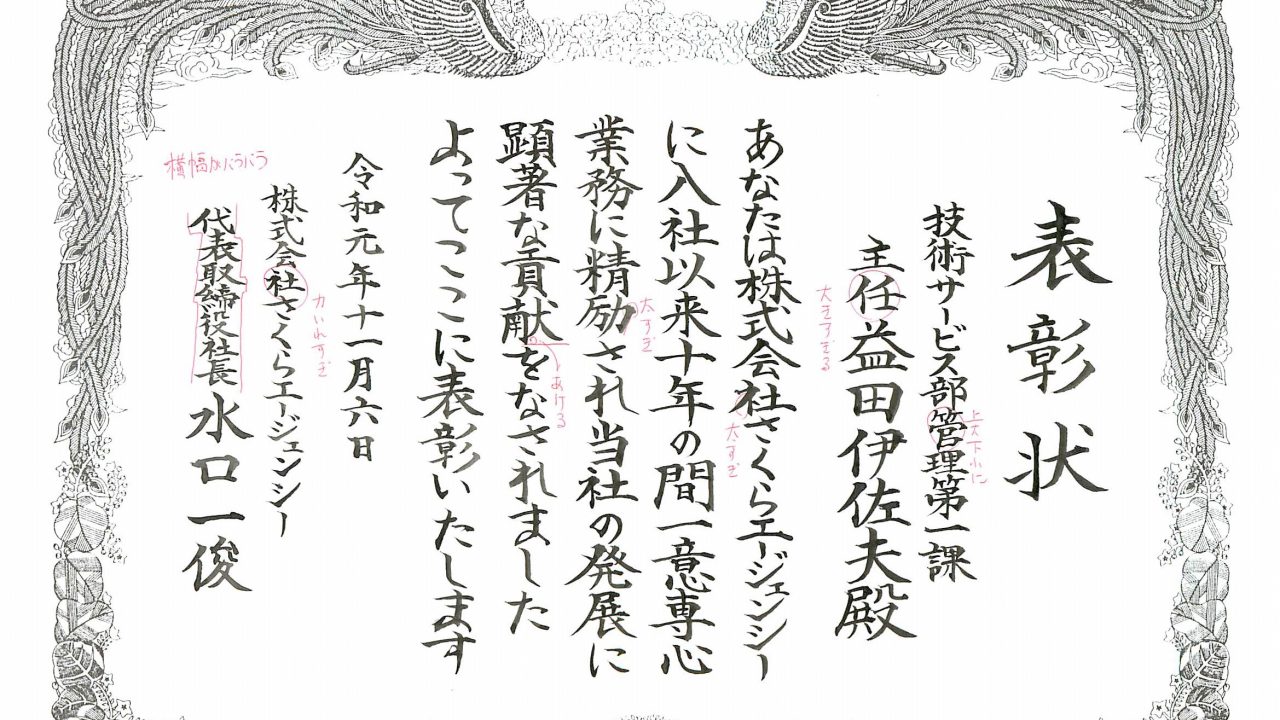 表彰状
技術サービス部管理第一課
上大下小に
主任益田伊佐夫殿
大きすぎる
あなたは株式会社さくらエージェンシー
大すぎ
に入社以来十年の間一意専心
業務に精励され当社の発展に
大すぎ
顕著な貢献をなされました
あける
よってここに表彰いたします
令和元年十一月六日
株式会社さくらエージェンシー
力いれすぎ
代表取締役社長水口一俊
横幅がバラバラ